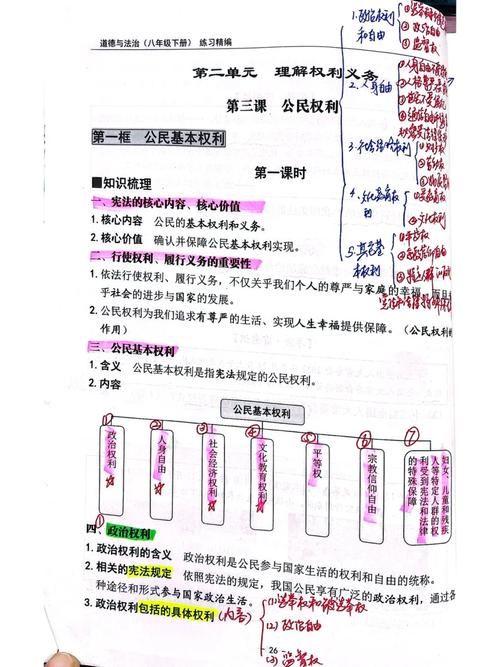 道德与法治（八年级下册） 练习精编
第二单元 理解权利义务
第三课 公民权利
第一框 公民基本权利
第一课时
■知识梳理
一、宪法的核心内容、核心价值
1. 核心内容 公民的基本权利和义务。
2. 核心价值 确认并保障公民基本权利实现。
二、行使权利、履行义务的重要性
1. 依法行使权利、履行义务，不仅关乎我们个人的尊严与家庭的幸福，而且
乎社会的进步与国家的发展。
2. 公民权利为我们追求有尊严的生活、实现人生幸福提供保障。（公民权利
作用）
三、公民基本权利
1. 含义 公民基本权利是指宪法规定的公民权利。
2. 内容
公民基本权利
① 政治权利
② 人身自由
③ 社会经济权利
④ 文化教育权利
⑤ 平等权
⑥ 宗教信仰自由
⑦ 妇女、儿童和残疾人等特定人群的权利受到宪法和法律的特殊保障
四、政治权利
1. 政治权利的含义 政治权利是公民参与国家生活的权利和自由的统称。
2. 相关的宪法规定 依照宪法的规定，我国公民享有广泛的政治权利，通过各
种途径和形式参与国家政治生活。
3. 政治权利包括的具体权利（内容）
(1) 选举权和被选举权
(2) 政治自由
(3) 监督权
26
1. 政治权利
和自由
② 政治自由
③ 监督权
2. 人身自由
① 人身自由不
3. 社会经济权利
4. 文化教育权
利
② 文化权利
5. 其他基
本权利
① 平等权